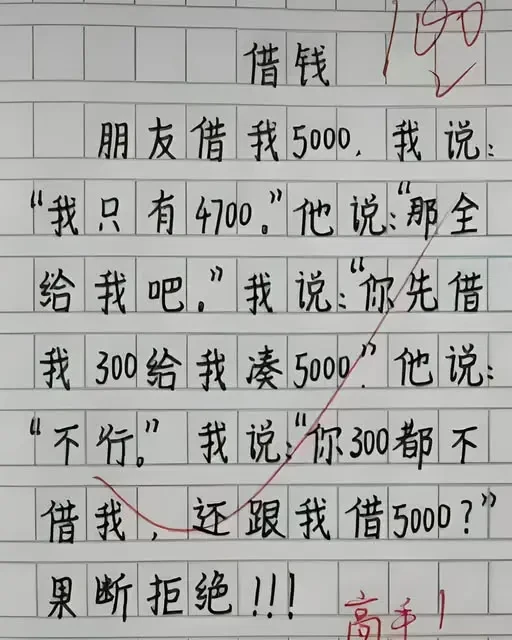 100
借钱
朋友借我5000，我说：
“我只有4700。”他说：“那全
给我吧。”我说：“你先借
我300给我凑5000”他说：
“不行。”我说：“你300都不
借我，还跟我借5000？”
果断拒绝!!!
高手！